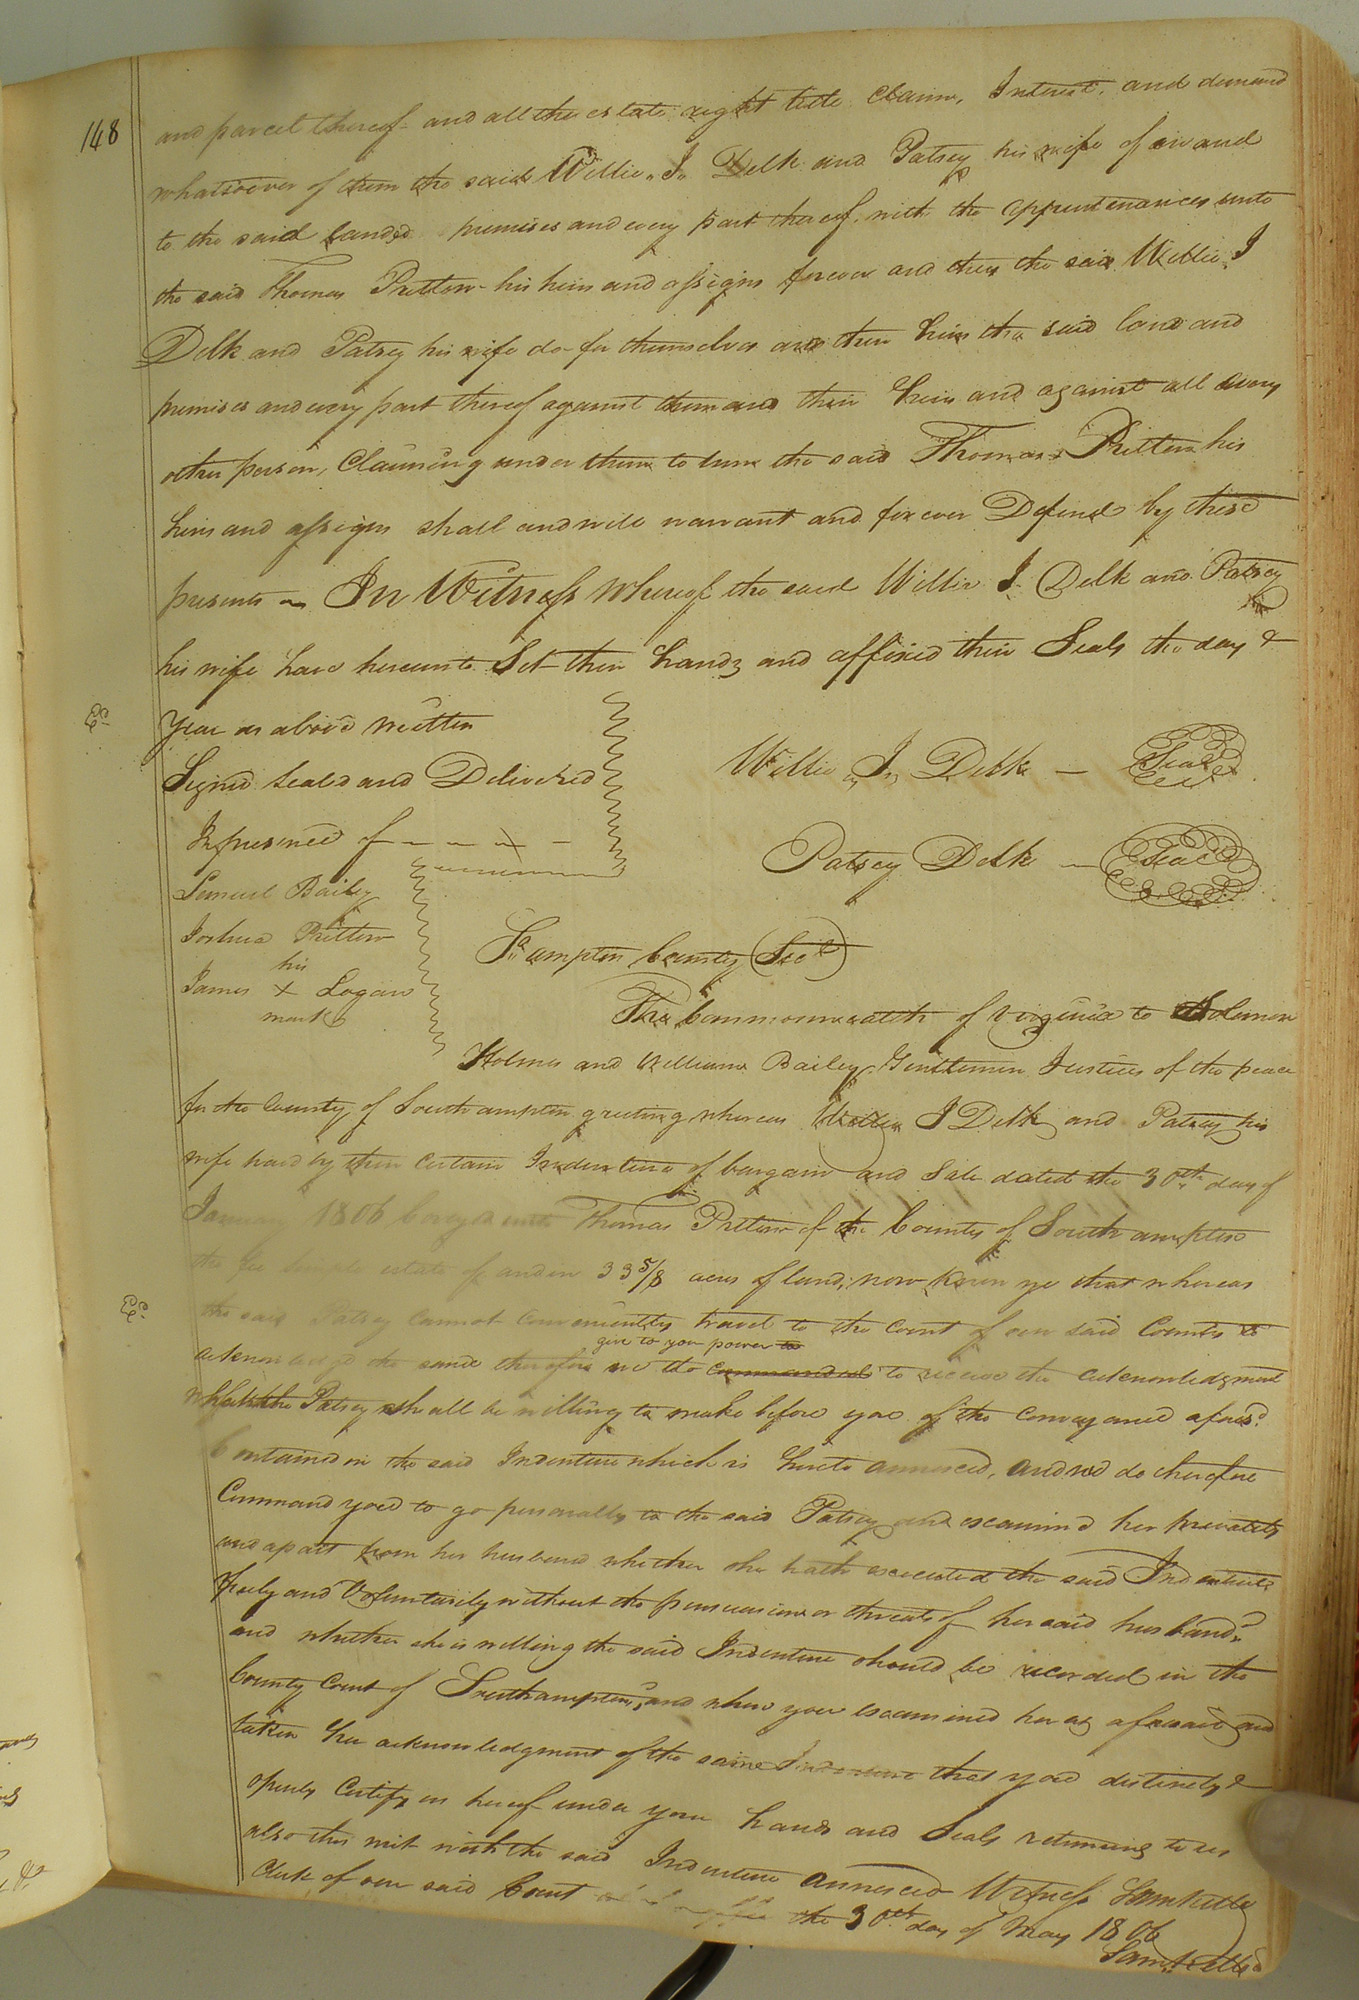 148
and parcel thereof and all the estate right title claim, Interest, and demand
whatsoever of them the said Willie J. Delk and Patsey his wife of in and
to the said landed premises and every part thereof, with the appurtenances unto
the said Thomas Pretlow his heirs and assigns forever and they the said Willie J
Delk and Patsey his wife do for themselves and their heirs the said land and
premises and every part thereof against them and their heirs and against all every
other person, Claiming under them to him the said Thomas Pretlow his
heirs and assigns shall and will warrant and forever Defend by these
presents In Witness whereof the said Willie J. Delk and Patsey
his wife have hereunto Set their hands and affixed their Seals the day &
Year as above written
Signed Sealed and Delivered
Willie J. Delk — Seal
In presence of
Patsey Delk — Seal
Samuel Bailey
Joshua Pretlow
his
James X Logan
mark
So.ampton County Sct
The Commonwealth of Virginia to Solomon
Holmes and William Bailey Gentlemen Justices of the peace
for the County of Southampton greeting whereas Willie J Delk and Patsey his
wife have by their certain Indenture of bargain and Sale dated the 30th day of
January 1806 Conveyed unto Thomas Pretlow of the County of Southampton
the fee simple estate of and in 33 5/8 acres of land; now know ye that whereas
the said Patsey cannot conveniently travel to the Court of our said County to
give to you power to
acknowledge the same therefore we do command you to receive the acknowledgment
which the Patsey shall be willing to make before you of the conveyance afores.d
Contained in the said Indenture which is hereto annexed, and we do therefore
Command you to go personally to the said Patsey and examine her privately
and apart from her husband whether she hath executed the said Indenture
freely and Voluntarily without the persuasions or threats of her said husband
and whether she is willing the said Indenture should be recorded in the
County Court of Southampton, and when you examined her as aforesaid and
taken her acknowledgment of the same Indenture that you distinctly &
openly Certify us hereof under your hands and Seals returning to us
also this writ with the said Indenture annexed Witness Saml Kello
Clerk of our said Court the 30th day of May 1806
Saml Kello